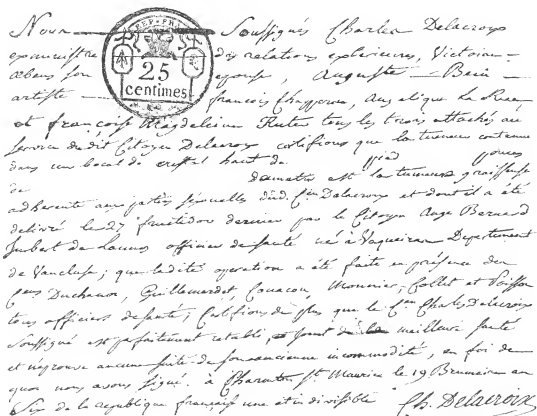 Nous Soussignés Charles Delacroix
exministre des relations extérieures, Victoire
REP. FRA.
25
centimes
Oëben son epouse, Auguste Bein
artiste françois Chapperon, Angelique La Rue,
et françoise Magdeleine tous les trois attachés au
Service dudit Citoyen Delacroix certifions que la tumeur contenue
dans un bocal de cristal haut de pied pouces
de diametre est la tumeur graisseuse
adherente aux parties sexuelles dud. Cen Delacroix et dont il a été
delivré le 27 fructidor dernier par le Citoyen Ange Bernard
Imbert de Lonnes officier de Santé né à Vaqueiras Departement
de Vaucluse; que ladite operation a été faite en présence des
Cens Duchanon, Guillemardet, Mounier, Collet et Poisson
tous officiers de Santé, Certifions de plus que le Cen Charles Delacroix
Soussigné est parfaitement retabli, meilleure Santé
et n'eprouve aucune suite de son ancienne incommodité, en foi de
quoi nous avons signé. à Charenton St. Maurice le 19 Brumaire an
Six de la republique française une et indivisible Ch. Delacroix